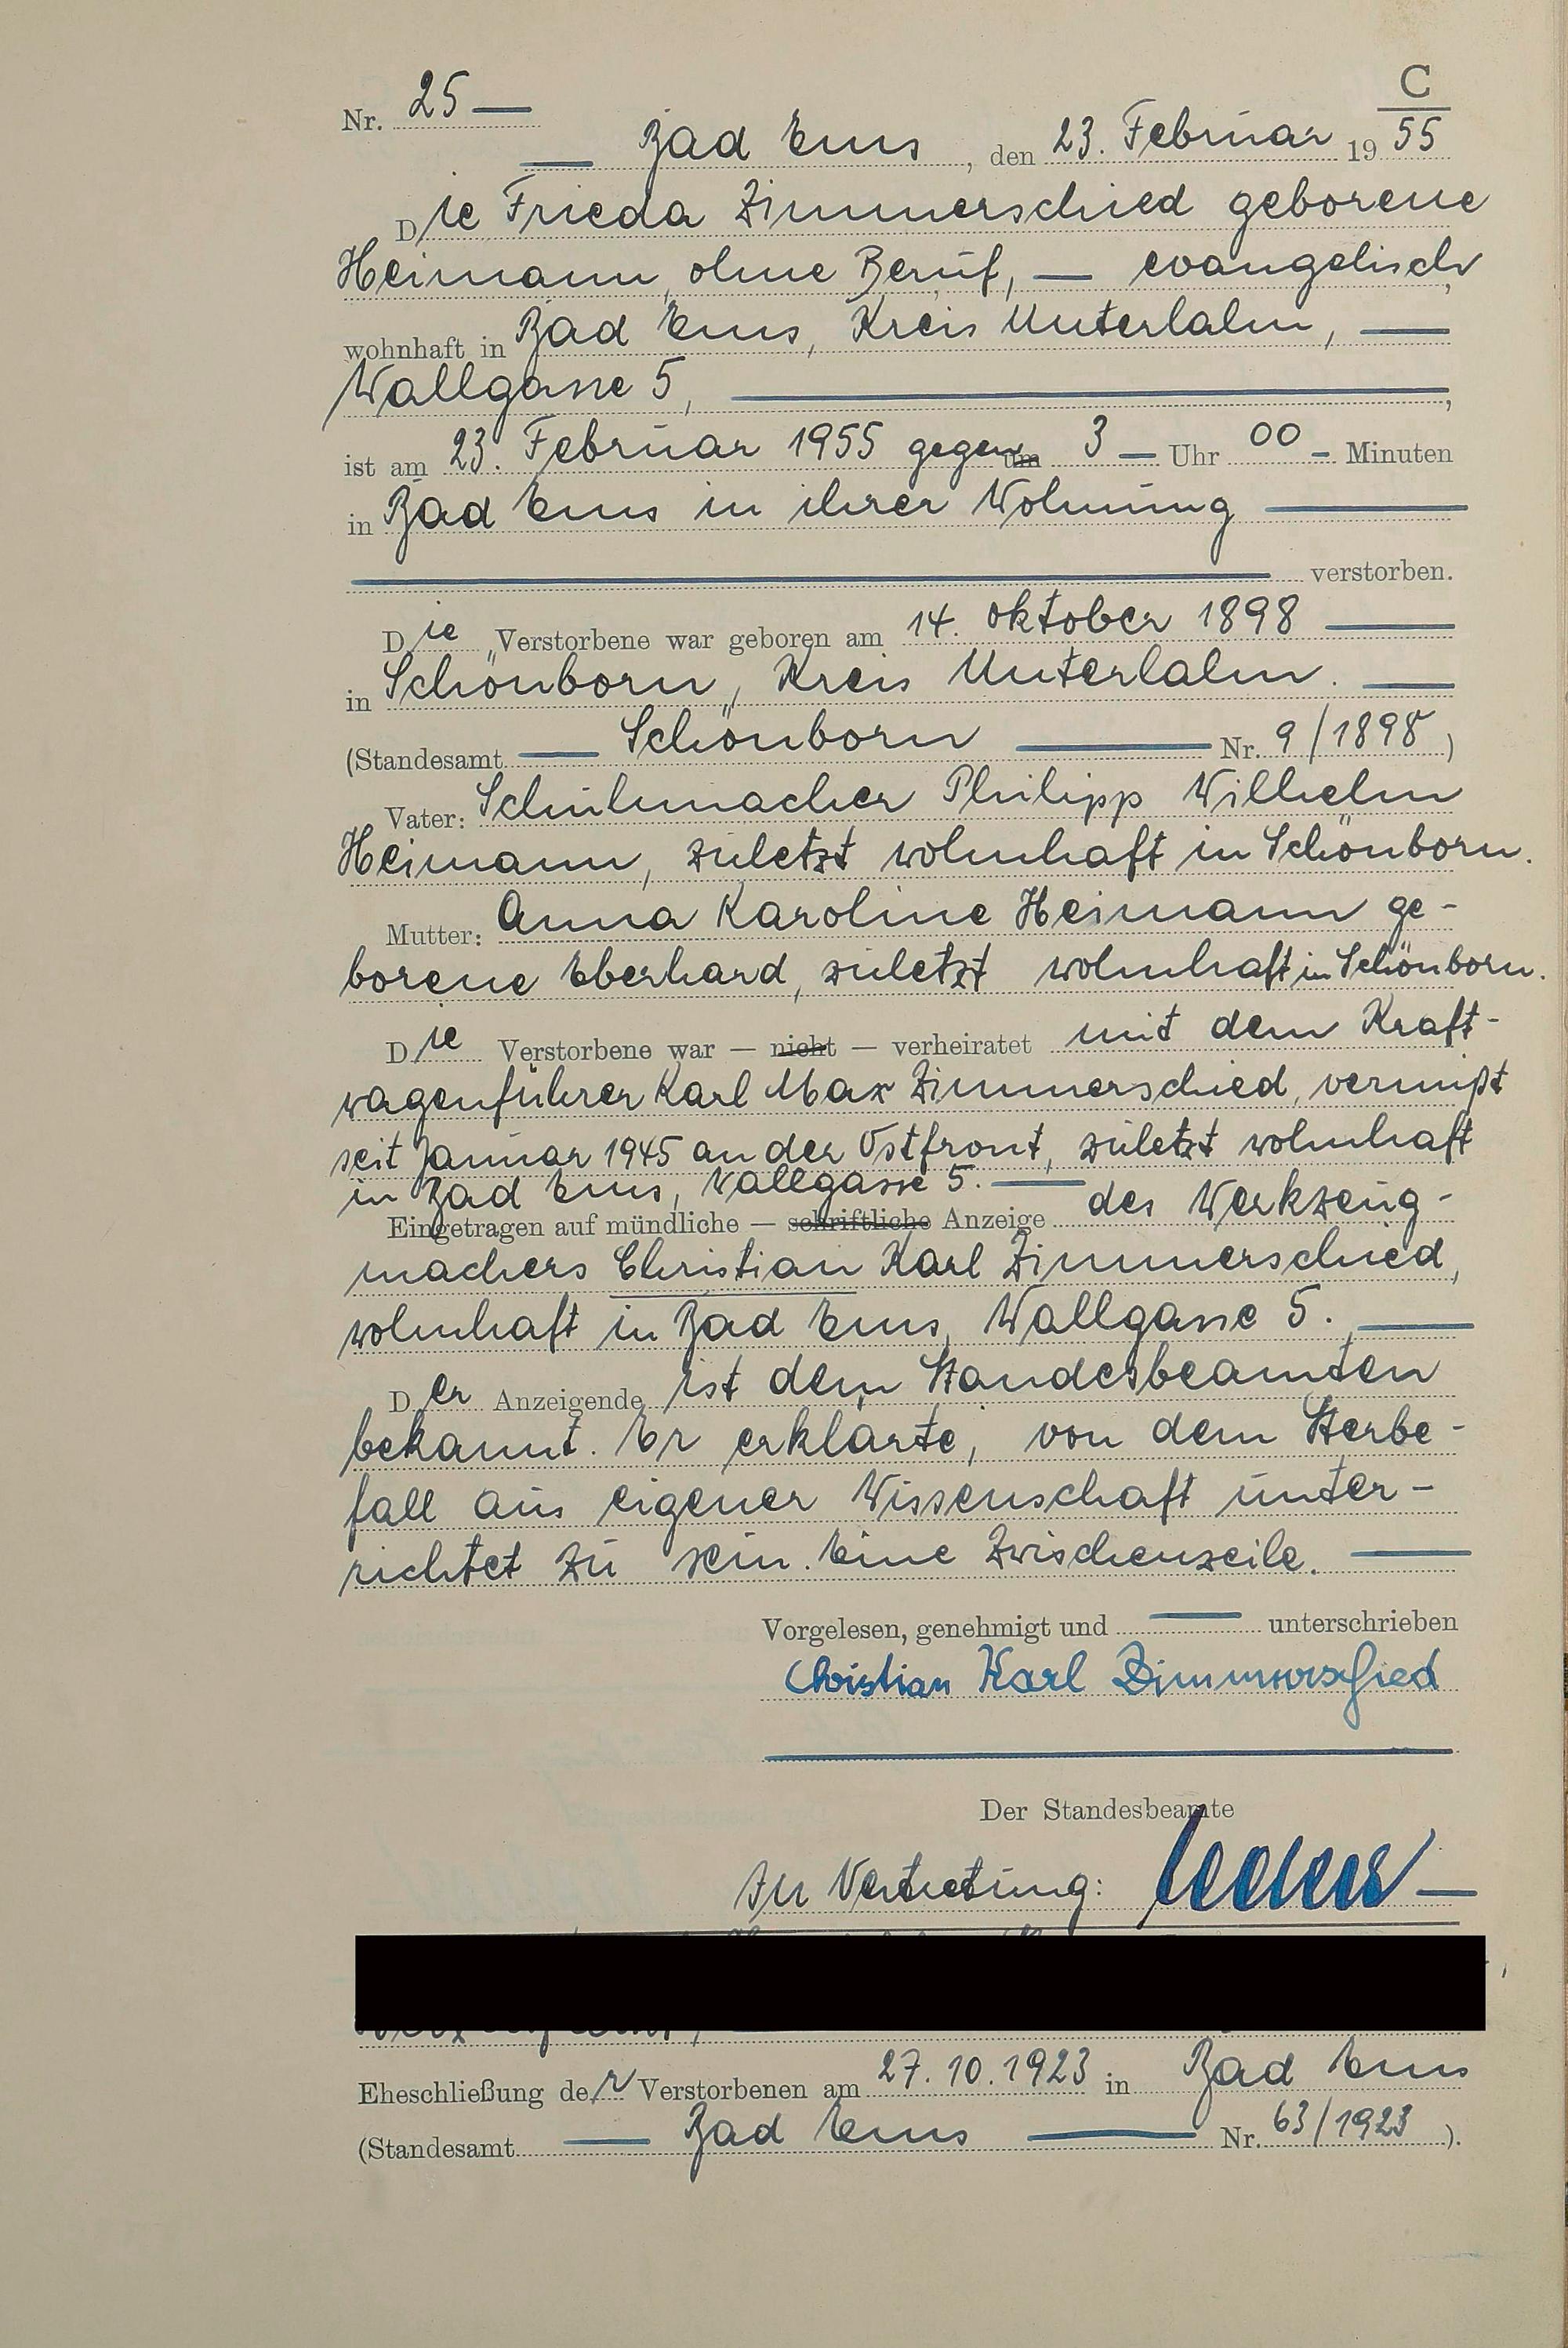 C
Nr. 25 —
— Bad Ems, den 23. Februar 1955
Die Frieda Zimmerschied geborene
Heimann, ohne Beruf, — evangelisch,
wohnhaft in Bad Ems, Kreis Unterlahn, —
Wallgasse 5, —,
ist am 23. Februar 1955 gegen um 3 — Uhr 00 — Minuten
in Bad Ems in ihrer Wohnung —
— verstorben.
Die Verstorbene war geboren am 14. Oktober 1898 —
in Schönborn, Kreis Unterlahn. —
(Standesamt — Schönborn — Nr. 9/1898)
Vater: Schuhmacher Philipp Wilhelm
Heimann, zuletzt wohnhaft in Schönborn.
Mutter: Anna Karoline Heimann ge-
borene Eberhard, zuletzt wohnhaft in Schönborn.
Die Verstorbene war — nicht — verheiratet mit dem Kraft-
wagenführer Karl Max Zimmerschied, vermißt
seit Januar 1945 an der Ostfront, zuletzt wohnhaft
in Bad Ems, Wallgasse 5. —
Eingetragen auf mündliche — schriftliche Anzeige des Werkzeug-
machers Christian Karl Zimmerschied,
wohnhaft in Bad Ems, Wallgasse 5. —
Der Anzeigende ist dem Standesbeamten
bekannt. Er erklärte, von dem Sterbe-
fall aus eigener Wissenschaft unter-
richtet zu sein. Eine Zwischenzeile. —
Vorgelesen, genehmigt und — unterschrieben
Christian Karl Zimmerschied
Der Standesbeamte
In Vertretung:
Eheschließung der Verstorbenen am 27.10.1923 in Bad Ems
(Standesamt — Bad Ems — Nr. 63/1923).